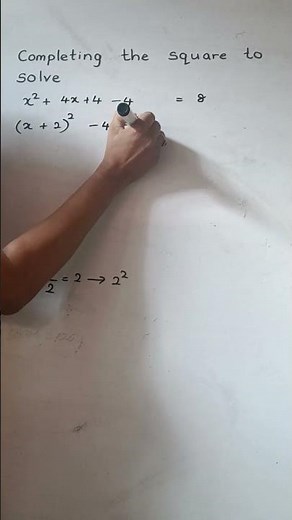 Completing the square to
solve
x² + 4x + 4 - 4 = 8
(x + 2)² - 4
2 = 2 → 2²